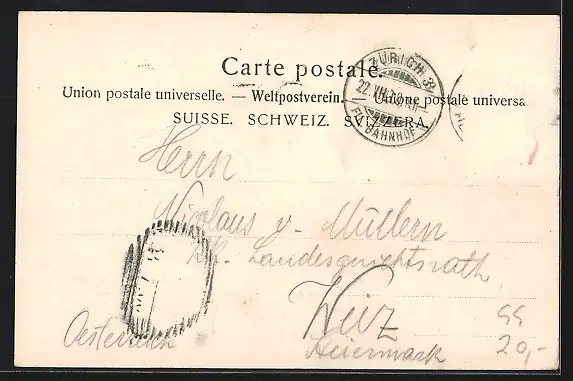 Carte postale.
Union postale universelle. — Weltpostverein. — Unione postale universa
SUISSE. SCHWEIZ. SVIZZERA.
ZÜRICH
22. XII.
BAHNHOF
Herrn
Nicolaus v. Müllern
k.k. Landesgerichtsrath
Weiz
Steiermark
Oesterreich
20,-